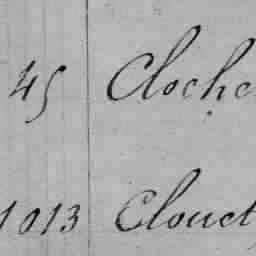 45 Cloche
1013 Clouet